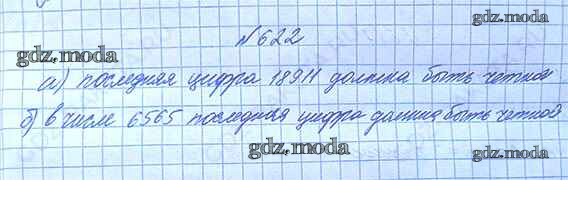 №622
gdz.moda
gdz.moda
а) последняя цифра 18911 должна быть четной
б) в числе 6565 последняя цифра должна быть четной
gdz.moda
gdz.moda